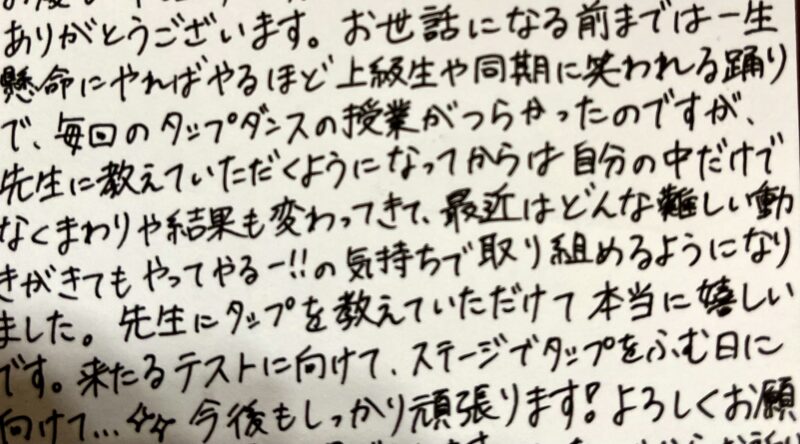 ありがとうございます。お世話になる前までは一生
懸命にやればやるほど上級生や同期に笑われる踊り
で、毎回のタップダンスの授業がつらかったのですが、
先生に教えていただくようになってからは自分の中だけで
なくまわりや結果も変わってきて、最近はどんな難しい動
きがきてもやってやるー!!の気持ちで取り組めるようになり
ました。先生にタップを教えていただけて本当に嬉しい
です。来たるテストに向けて、ステージでタップをふむ日に
向けて...✨ 今後もしっかり頑張ります!よろしくお願